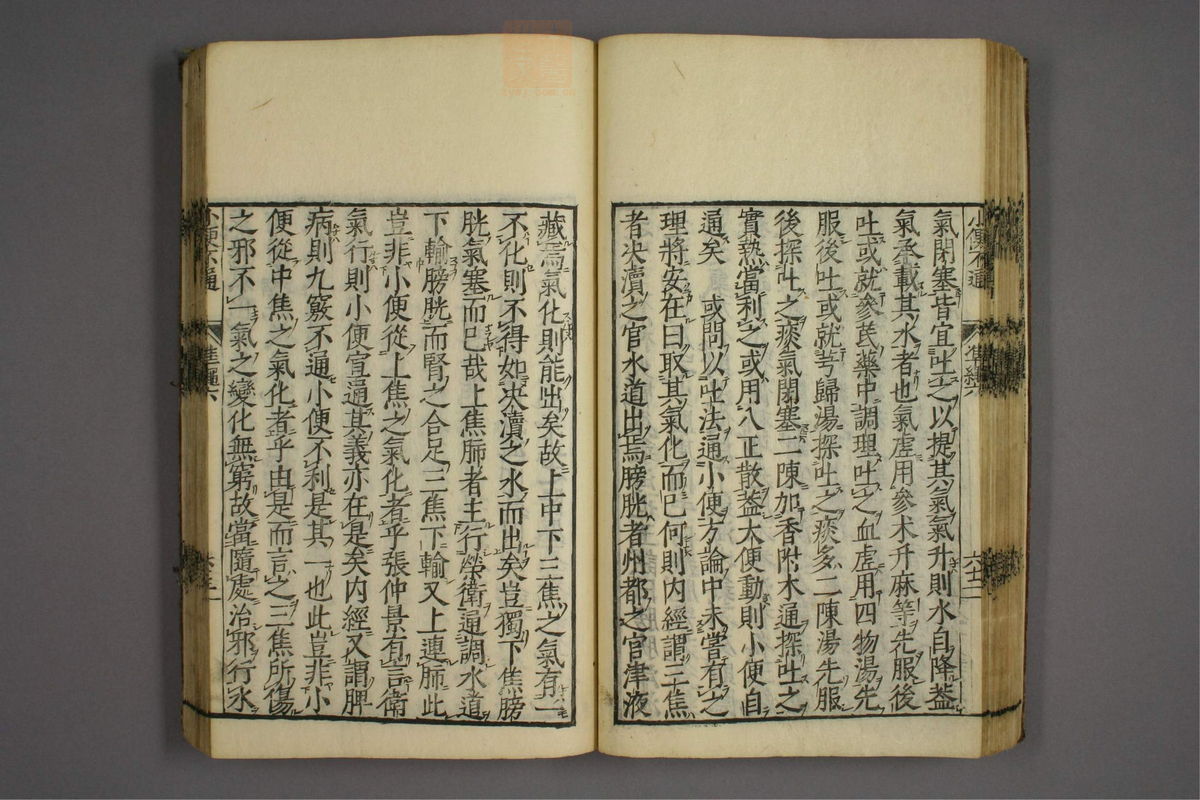 氣閉塞昔宜吐之以提其氣氣升則水自降蓋
氣丞載其水者也氣虛用參朮升麻等先服後
吐或就參芪藥中調理吐之血虛用四物湯先
服後吐或就芎歸湯探吐之痰多二陳湯先服
後探吐之痰氣閉塞二陳加香附木通探吐之
實熱當利之或用八正散蓋大便動則小便自
通矣 或問以吐法通小便方論中未嘗有之
理將安在曰取其氣化而已何則內經謂三焦
者决瀆之官水道出焉膀胱者州都之官津液
藏焉氣化則能出矣故上中下三焦之氣有一
不化則不得如决瀆之水而出矣豈獨下焦膀
胱氣塞而已哉上焦肺者主行榮衛通調水道
下輸膀胱而腎之合足三焦下輸又上連肺此
豈非小便從上焦之氣化者乎張仲景有言衛
氣行則小便宣通其義亦在是矣內經又謂脾
病則九竅不通小便不利是其一也此豈非小
便從中焦之氣化者乎由是而言之三焦所傷
之邪不一氣之變化無窮故當隨處治邪行水
小便不通